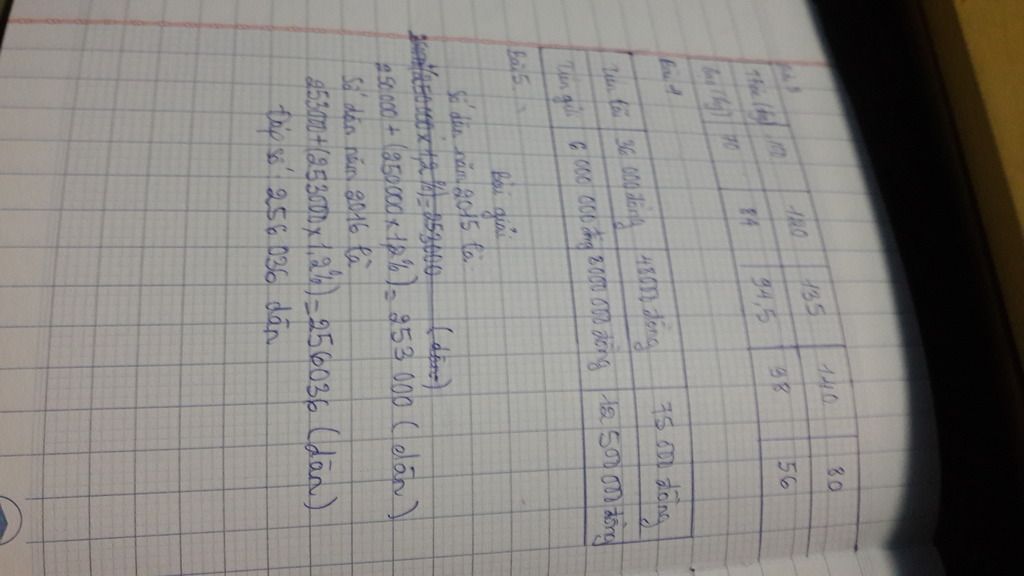 Bài 3
Thóc (kg) 100 120 135 140 80
Gạo (kg) 70 84 94,5 98 56
Bài 4
Tiền lãi 36 000 đồng 48000 đồng 75 000 đồng
Tiền gửi 6 000 000 đồng 8000 000 đồng 12 500 000 đồng
Bài 5
Bài giải
Số dân năm 2015 là
250000 + (250000 x 1,2%) = 253 000 (dân)
Số dân năm 2016 là
253000 + (253000 x 1,2%) = 256036 (dân)
Đáp số: 256 036 dân